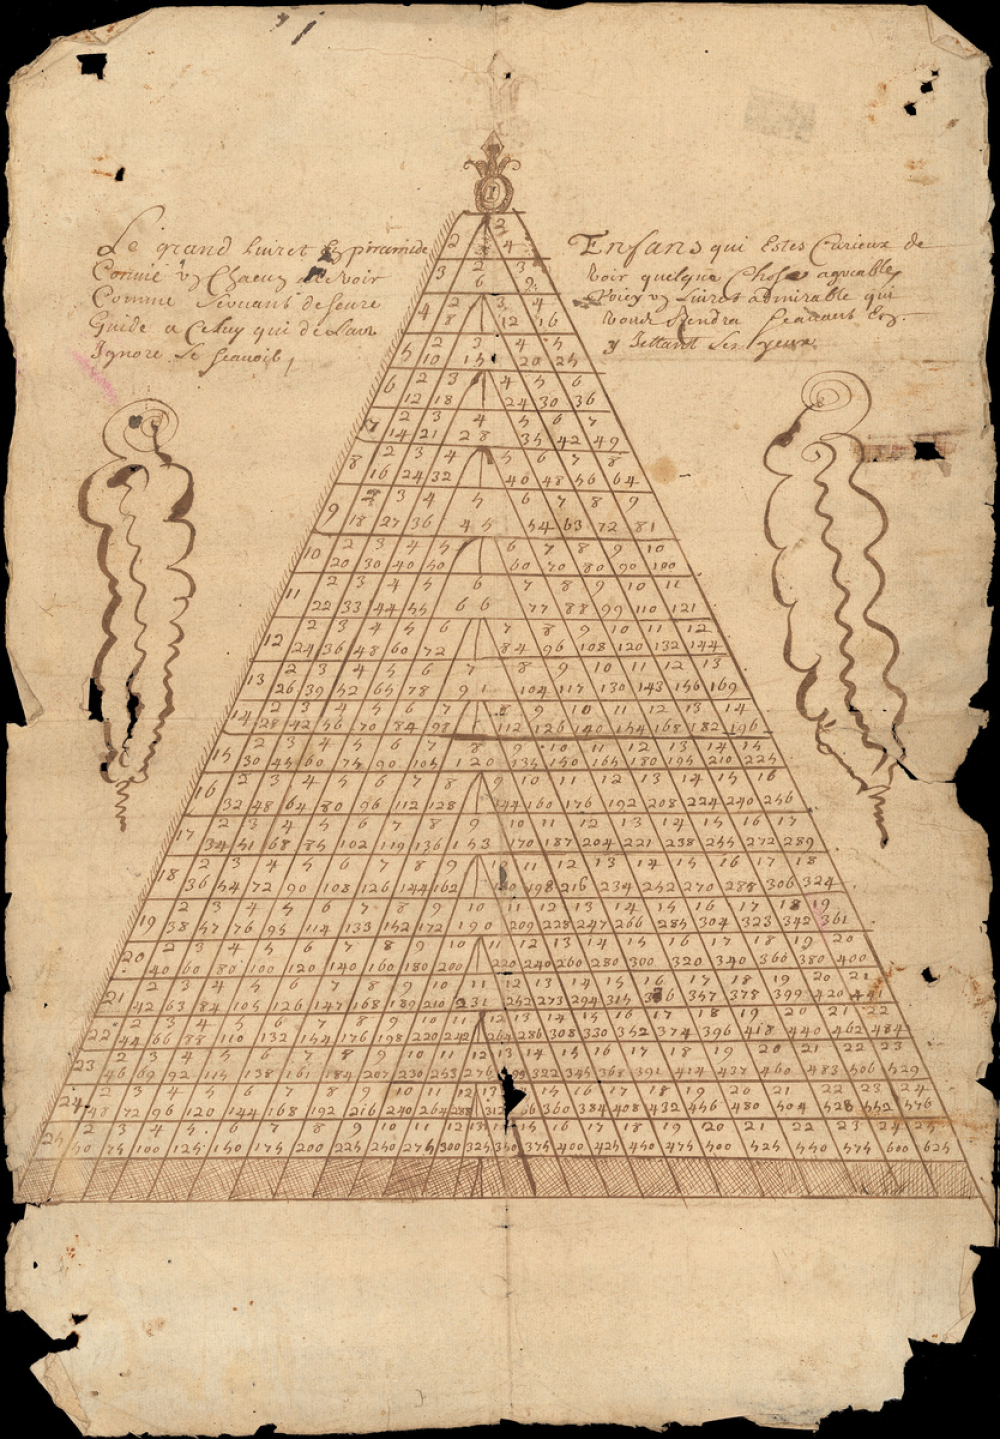 I
Le grand Livret En piramide
Convie un Chacun de le voir
Comme servant de seure
Guide a Celuy qui de l'avoir
Ignore le scavoir,
Enfans qui Estes Curieux de
voir quelque Chose agreable
Voicy un Livret admirable qui
vous Rendra scavans En
y Jettant les yeux
2 2
4
3 2 3
6 9
4 2 3 4
8 12 16
5 2 3 4 5
10 15 20 25
6 2 3 4 5 6
12 18 24 30 36
7 2 3 4 5 6 7
14 21 28 35 42 49
8 2 3 4 5 6 7 8
16 24 32 40 48 56 64
9 2 3 4 5 6 7 8 9
18 27 36 45 54 63 72 81
10 2 3 4 5 6 7 8 9 10
20 30 40 50 60 70 80 90 100
11 2 3 4 5 6 7 8 9 10 11
22 33 44 55 66 77 88 99 110 121
12 2 3 4 5 6 7 8 9 10 11 12
24 36 48 60 72 84 96 108 120 132 144
13 2 3 4 5 6 7 8 9 10 11 12 13
26 39 52 65 78 91 104 117 130 143 156 169
14 2 3 4 5 6 7 8 9 10 11 12 13 14
28 42 56 70 84 98 112 126 140 154 168 182 196
15 2 3 4 5 6 7 8 9 10 11 12 13 14 15
30 45 60 75 90 105 120 135 150 165 180 195 210 225
16 2 3 4 5 6 7 8 9 10 11 12 13 14 15 16
32 48 64 80 96 112 128 144 160 176 192 208 224 240 256
17 2 3 4 5 6 7 8 9 10 11 12 13 14 15 16 17
34 51 68 85 102 119 136 153 170 187 204 221 238 255 272 289
18 2 3 4 5 6 7 8 9 10 11 12 13 14 15 16 17 18
36 54 72 90 108 126 144 162 180 198 216 234 252 270 288 306 324
19 2 3 4 5 6 7 8 9 10 11 12 13 14 15 16 17 18 19
38 57 76 95 114 133 152 172 190 209 228 247 266 285 304 323 342 361
20 2 3 4 5 6 7 8 9 10 11 12 13 14 15 16 17 18 19 20
40 60 80 100 120 140 160 180 200 220 240 260 280 300 320 340 360 380 400
21 2 3 4 5 6 7 8 9 10 11 12 13 14 15 16 17 18 19 20 21
42 63 84 105 126 147 168 189 210 231 252 273 294 315 336 357 378 399 420 441
22 2 3 4 5 6 7 8 9 10 11 12 13 14 15 16 17 18 19 20 21 22
44 66 88 110 132 154 176 198 220 242 264 286 308 330 352 374 396 418 440 462 484
23 2 3 4 5 6 7 8 9 10 11 12 13 14 15 16 17 18 19 20 21 22 23
46 69 92 115 138 161 184 207 230 253 276 99 322 345 368 391 414 437 460 483 506 529
24 2 3 4 5 6 7 8 9 10 11 12 13 15 16 17 18 19 20 21 22 23 24
48 72 96 120 144 168 192 216 240 264 288 312 36 360 384 408 432 456 480 504 528 552 576
25 2 3 4 5 6 7 8 9 10 11 12 13 14 15 16 17 18 19 20 21 22 23 24 25
50 75 100 125 150 175 200 225 250 275 300 325 350 375 400 425 450 475 500 525 550 575 600 625